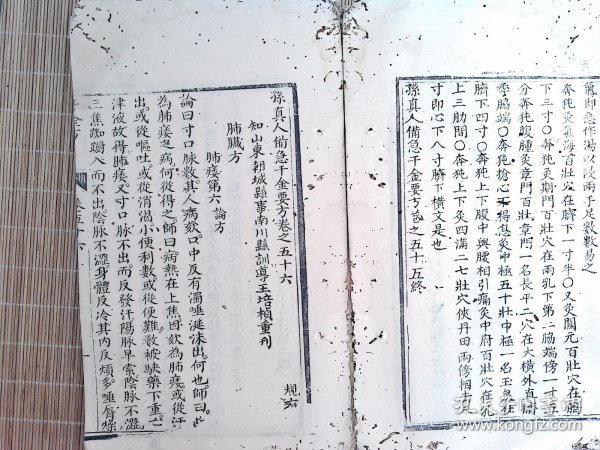 氣即急作湯以浸兩手足數數易之
奔㹠灸氣海百壯穴在臍下一寸半○又灸關元百壯穴在臍
下三寸○奔㹠灸期門百壯穴在兩乳下第二脇端傍一寸五
分奔㹠腹腫灸章門百壯章門一名長平二穴在大橫外直臍
季脇端○奔㹠搶心不得息灸中極五十壯中極一名玉泉在
臍下四寸○奔㹠上下腹中與腰相引痛灸中府百壯穴在乳
上三肋間○奔㹠上下灸四滿二七壯穴俠丹田兩傍相去三
寸即心下八寸臍下橫文是也
孫真人備急千金要方卷之五十五終
孫真人備急千金要方卷之五十六
知山東朝城縣事南川縣訓導王培楨重刋
肺臟方
肺痿第六 論方
規六
論曰寸口脉數其人病欬口中反有濁唾涎沫出何也師曰此
為肺痿之病何從得之師曰病熱在上焦因欬為肺痿或從汗
出或從嘔吐或從消渴小便利數或從便難數被駃藥下重亡
津液故得肺痿又寸口脉不出而反發汗陽脉早索陰脉不澀
三焦踟躕入而不出陰脉不澀身體反冷其内反煩多唾唇燥
孔夫子舊書網
www.kongfz.com